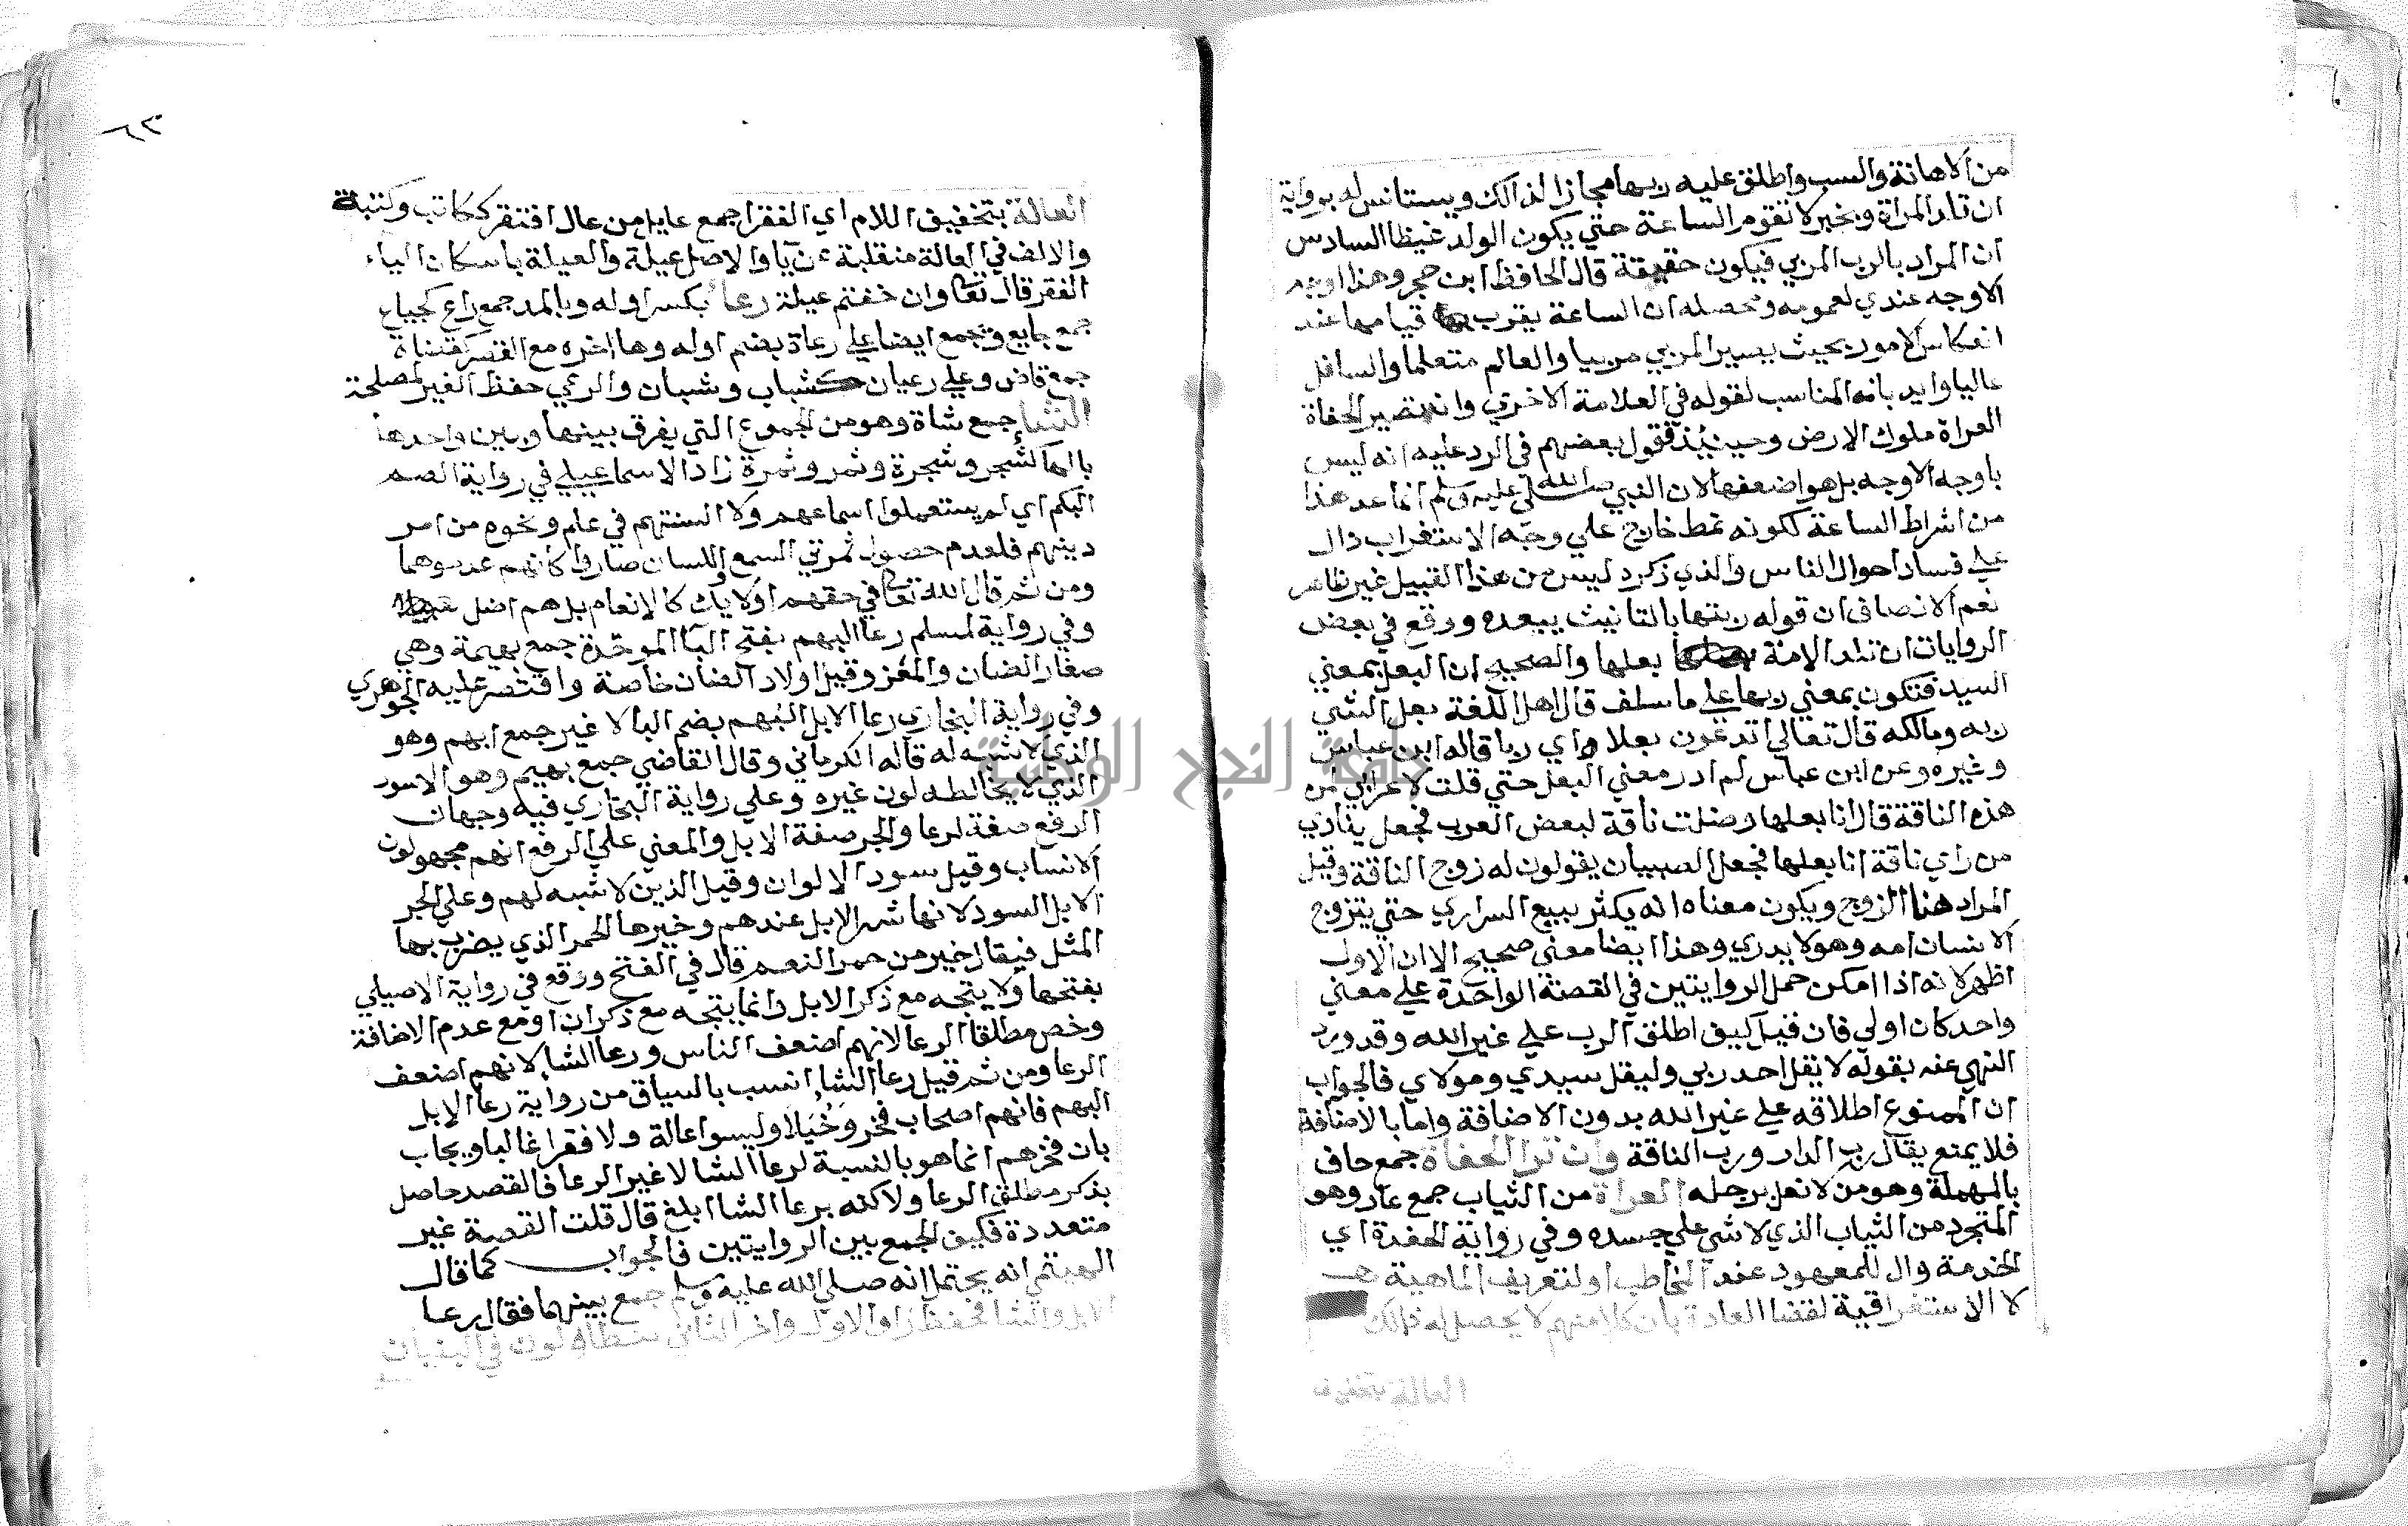 من الاهانة والسب واطلق عليه ربها مجازا لذالك ويستانس له برواية
ان تلد المراة وبخبر لا تقوم الساعة حتي يكون الولد غيظا السادس
ان المراد بالرب المربي فيكون حقيقة قال الحافظ ابن حجر وهذا اوجه
الاوجه عندي لعمومه ومحصله ان الساعة يقرب قيامها عند
انعكاس الامور بحيث يصير المربي مربيا والعالم متعلما والسافل
عاليا وايد بانه المناسب لقوله في العلامة الاخري وان تصير الحفاة
العراة ملوك الارض وحينئذ فقول بعضهم في الرد عليه انه ليس
باوجه الاوجه بل هو اضعفها لان النبي صلى الله عليه وسلم انما عد هذا
من اشراط الساعة لكونه نمط خارج علي وجه الاستغراب دال
علي فساد احوال الناس والذي ذكره ليس من هذا القبيل غير ظاهر
نعم الانصاف ان قوله ربتها بالتانيث يبعده ووقع في بعض
الروايات ان تلد الامة بعلها والصحيح ان البعل بمعني
السيد فتكون بمعني ربها علي ما سلف قال اهل اللغة بعل الشي
ربه ومالكه قال تعالي اتدعون بعلا اي ربا قاله ابن عباس
وغيره وعن ابن عباس لم ادر معني البعل حتي قلت لاعرابي لمن
هذه الناقة قال انا بعلها وضلت ناقة لبعض العرب فجعل ينادي
من راي ناقة انا بعلها فجعل الصبيان يقولون له زوج الناقة وقيل
المراد هنا الزوج ويكون معناه انه يكثر بيع السراري حتي يتزوج
الانسان امه وهو لا يدري وهذا ايضا معنى صحيح الا ان الاول
اظهر لانه اذا امكن حمل الروايتين في القصة الواحدة علي معني
واحد كان اولي فان قيل كيف اطلق الرب علي غير الله وقد ورد
النهي عنه بقوله لا يقل احد ربي وليقل سيدي ومولاي فالجواب
ان الممنوع اطلاقه علي غير الله بدون الاضافة واما بالاضافة
فلا يمنع يقال رب الدار ورب الناقة وان تري الحفاة جمع حاف
بالمهملة وهو من لا نعل برجله العراة من الثياب جمع عار وهو
المتجرد من الثياب الذي لا شي علي جسده وفي رواية الحفدة اي
الخدمة وال للمعهود عند المخاطب او لتعريف الماهية
لا الاستغراقية لقضا العادة بان كلا منهم لا يحصل له ذالك
العالة بتخفيف
٦٣
العالة بتخفيف اللام اي الفقرا جمع عايل من عال افتقر ككاتب وكتبة
والالف في العالة منقلبة عن يا والاصل عيلة والعيلة باسكان الياء
الفقر قال تعا وان خفتم عيلة رعا بكسر اوله وبالمد جمع راع كجياع
جمع جايع وتجمع ايضا علي رعاة بضم اوله وها اخره مع القصر كقضاة
جمع قاض وعلي رعيان كشباب وشبان والرعي حفظ الغير لمصلحة
الشا جمع شاة وهو من الجموع التي يفرق بينها وبين واحدها
بالها كشجر وشجرة وثمر وثمرة زاد الاسماعيلي في رواية الصم
البكم اي لم يستعملوا اسماعهم ولا السنتهم في علم ونحوه من امر
دينهم فلعدم حصول ثمرتي السمع واللسان صاروا كانهم عدموهما
ومن ثم قال الله تعا في حقهم اولايك كالانعام بل هم اضل
وفي رواية لمسلم رعا البهم بفتح البا الموحدة جمع بهيمة وهي
صغار الضان والمعز وقيل اولاد الضان خاصة واقتصر عليه الجوهري
وفي رواية البخاري رعا الابل البهم بضم البا لا غير جمع ابهم وهو
الذي لا شبه له قاله الكرماني وقال القاضي جمع بهيم وهو الاسود
الذي لا يخالطه لون غيره وعلي رواية البخاري فيه وجهان
الرفع صفة لرعا والجر صفة الابل والمعني علي الرفع انهم مجهولون
الانساب وقيل سود الالوان وقيل الذين لا شبه لهم وعلي الجر
الابل السود لانها شر الابل عندهم وخيرها الحمر الذي يضرب بها
المثل فيقال خير من حمر النعم قال في الفتح ووقع في رواية الاصيلي
بفتحها ولا يتجه مع ذكر الابل وانما يتجه مع ذكر ان او مع عدم الاضافة
وخص مطلقا الرعا لانهم اضعف الناس ورعا الشا لانهم اضعف
الرعا ومن ثم قيل رعا الشا انسب بالسياق من رواية رعا الابل
البهم فانهم اصحاب فخر وخيلا وليسوا عالة ولا فقرا غالبا ويجاب
بان فخرهم انما هو بالنسبة لرعا الشا لا غير الرعا فالقصد حاصل
بذكر مطلق الرعا ولاكنه برعا الشا ابلغ قال قلت القصة غير
متعددة فكيف الجمع بين الروايتين فالجواب كما قال
الهيتمي انه يحتمل انه صلي الله عليه وسلم جمع بينهما فقال رعا
الابل والشا فحفظ راو الاول واخر الثاني يتطاولون في البنيان
جامعة النجاح الوطنية